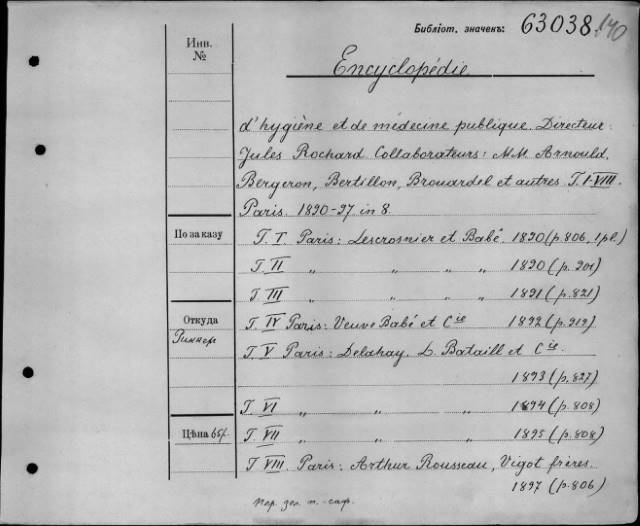 Библіот. значенъ: 63038. 140
Инв.
№
Encyclopédie
d'hygiène et de médecine publique. Directeur:
Jules Rochard Collaborateurs: MM. Arnould,
Bergeron, Bertillon, Brouardel et autres. T. I-VIII.
Paris. 1890-97 in 8.
По заказу
T. I. Paris: Lescrosnier et Babé. 1890 (p. 806, 1 pl.)
T. II " " " " 1890 (p. 901)
T. III " " " " 1891 (p. 821)
Откуда
Риккер
T. IV Paris: Veuve Babé et Cie 1892 (p. 919).
T. V Paris: Delahay, L. Bataill et Cie.
1893 (p. 827)
T. VI " " " 1894 (p. 808)
Цѣна 65р.
T. VII " " " 1895 (p. 808)
T. VIII. Paris: Arthur Rousseau, Vigot frères.
1897 (p. 806)
пер. зел. т.-саф.